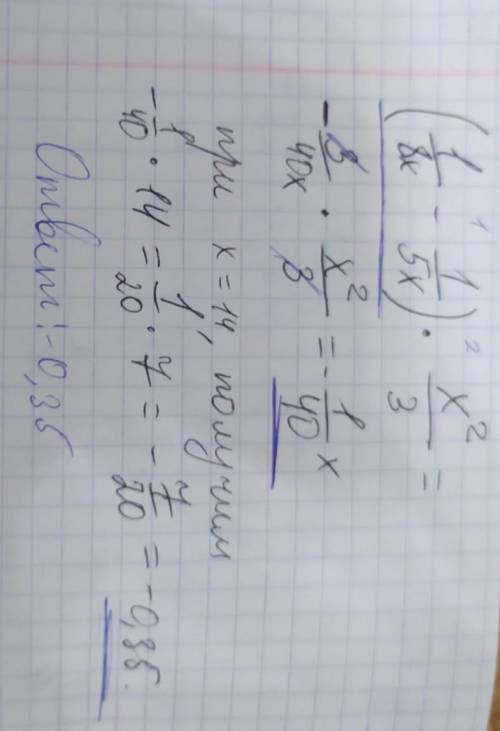 (1/8x - 1/5x) · x²/3 =
1 2
-3/40x · x²/3 = -1/40 x
при x = 14, получим
-1/40 · 14 = 1/20 · 7 = -7/20 = -0,35.
Ответ: -0,35